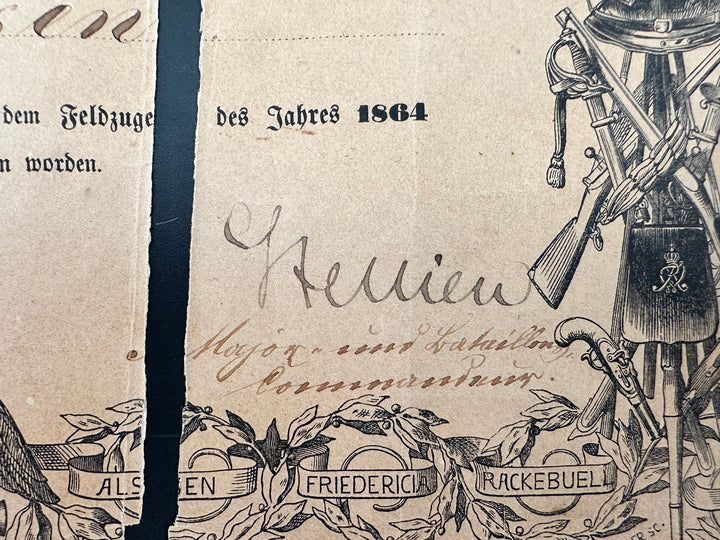 en
dem Feldzuge des Jahres 1864
n worden.
Major- und Bataillons,
Commandeur.
ALSSEN FRIEDERICIA RACKEBUELL